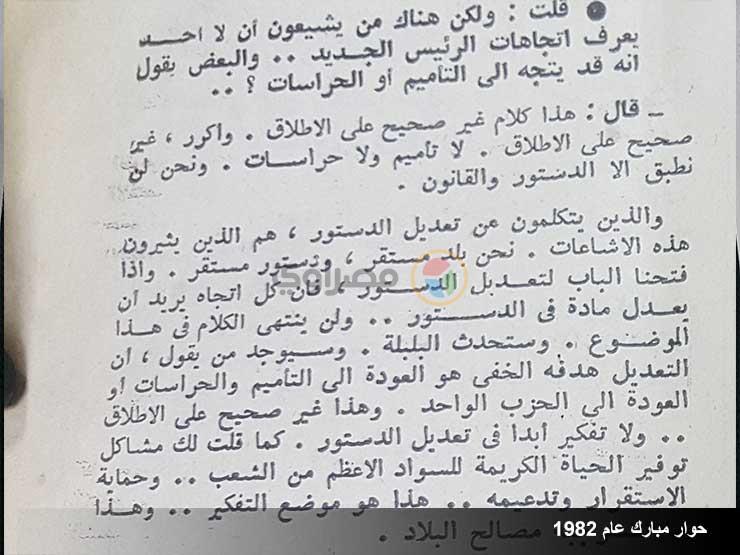 ● قلت : ولكن هناك من يشيعون أن لا احد
يعرف اتجاهات الرئيس الجديد .. والبعض يقول
انه قد يتجه الى التأميم أو الحراسات ؟ ..
ـ قال : هذا كلام غير صحيح على الاطلاق . واكرر ، غير
صحيح على الاطلاق . لا تأميم ولا حراسات . ونحن لن
نطبق الا الدستور والقانون .
والذين يتكلمون عن تعديل الدستور ، هم الذين يثيرون
هذه الاشاعات . نحن بلد مستقر ، ودستور مستقر . واذا
فتحنا الباب لتعديل الدستور ، فان كل اتجاه يريد أن
يعدل مادة فى الدستور .. ولن ينتهى الكلام فى هذا
الموضوع . وستحدث البلبلة . وسيوجد من يقول ، ان
التعديل هدفه الخفى هو العودة الى التأميم والحراسات أو
العودة الى الحزب الواحد . وهذا غير صحيح على الاطلاق
.. ولا تفكير أبدا فى تعديل الدستور . كما قلت لك مشاكل
توفير الحياة الكريمة للسواد الاعظم من الشعب .. وحماية
الاستقرار وتدعيمه .. هذا هو موضع التفكير .. وهذا
مصالح البلاد .
مصراوي
حوار مبارك عام 1982